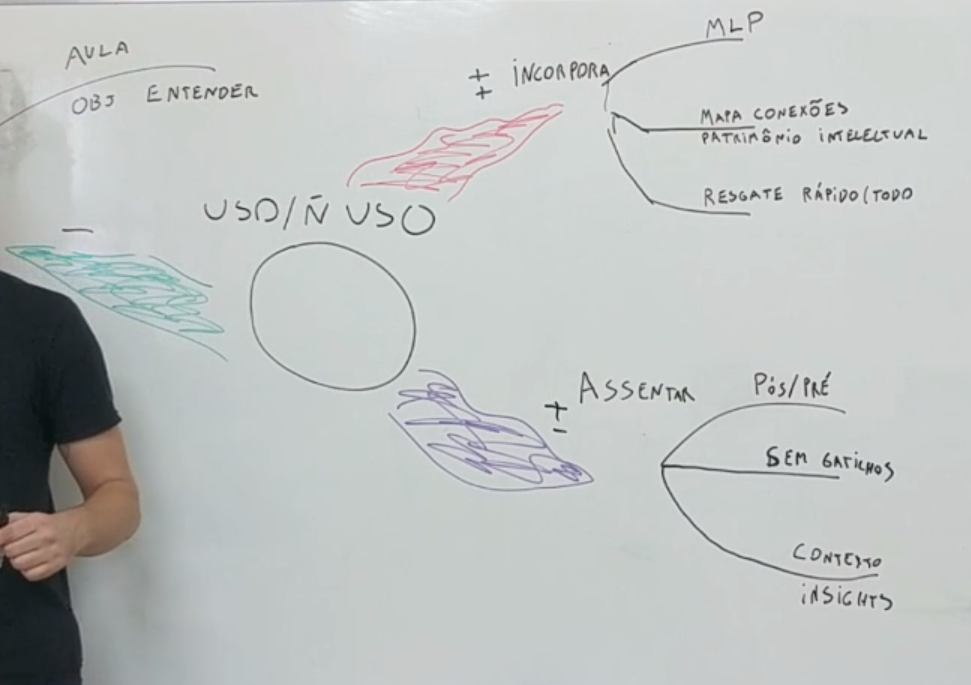 AULA
OBJ ENTENDER
USO/Ñ USO
-
+
+
INCORPORA
MLP
MAPA CONEXÕES
PATRIMÔNIO INTELECTUAL
RESGATE RÁPIDO/TODO
+
-
ASSENTAR
PÓS/PRÉ
SEM GATILHOS
CONTEXTO
INSIGHTS